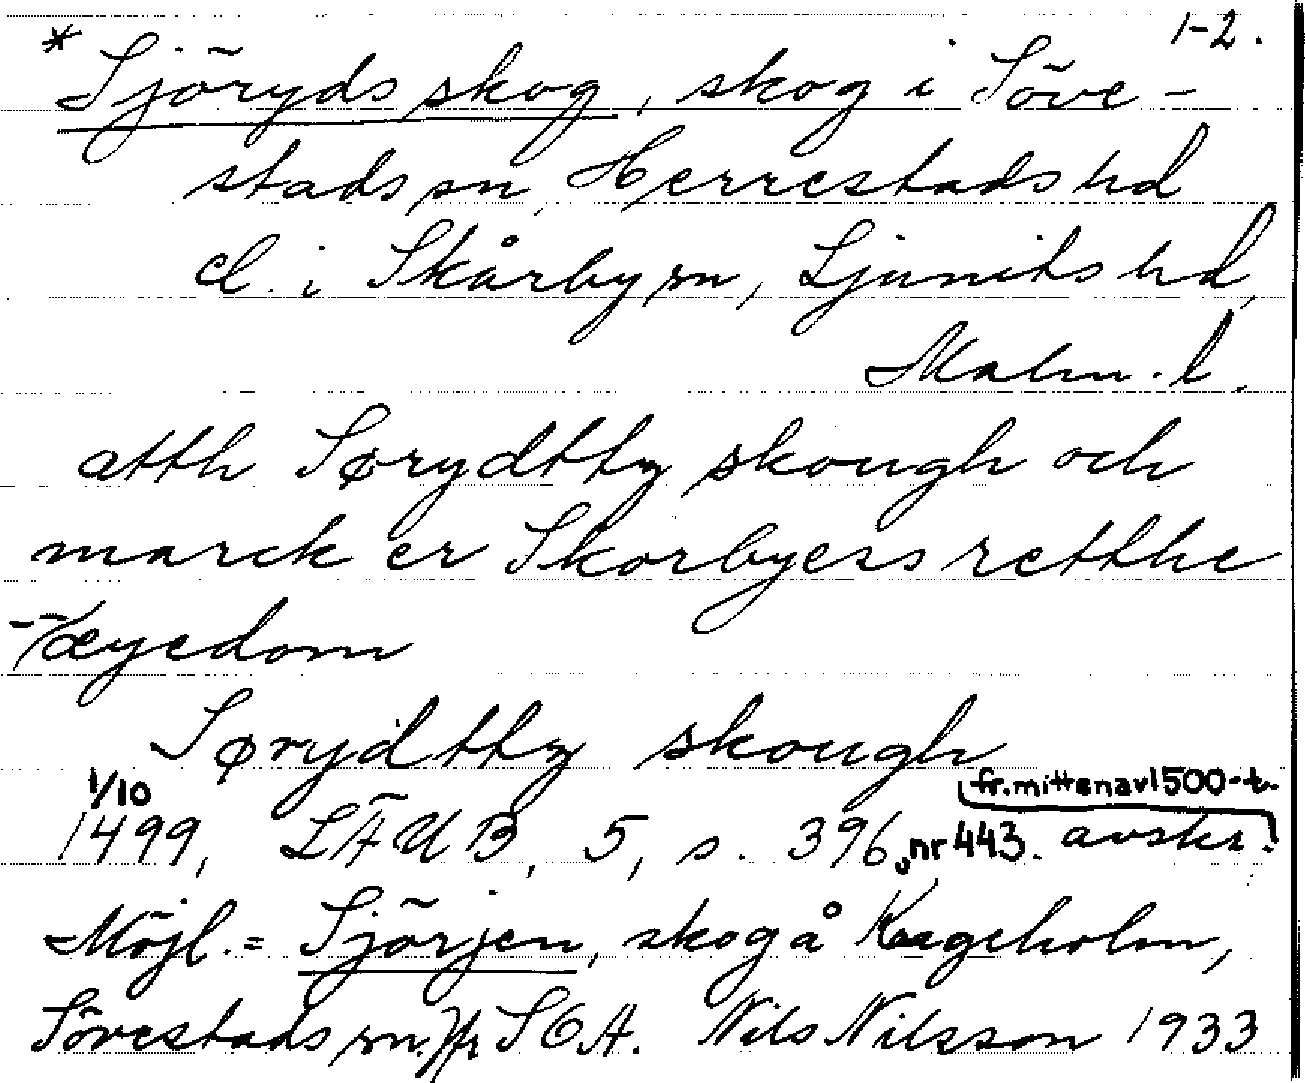 1-2.
* Sjöryds skog, skog i Söve-
stads sn, Herrestads hd
el. i Skårby sn, Ljunits hd,
Malm. l.
atth Sørydttz skough och
marck er Skorbyess retthe
æyedom
Sørydttz skough
1/10 fr. mitten av 1500-t.
1499, LÄUB, 5, s. 396, nr 443. avskr.
Möjl. = Sjörjen, skog å Krageholm,
Sövestads sn. Nils Nilsson 1933